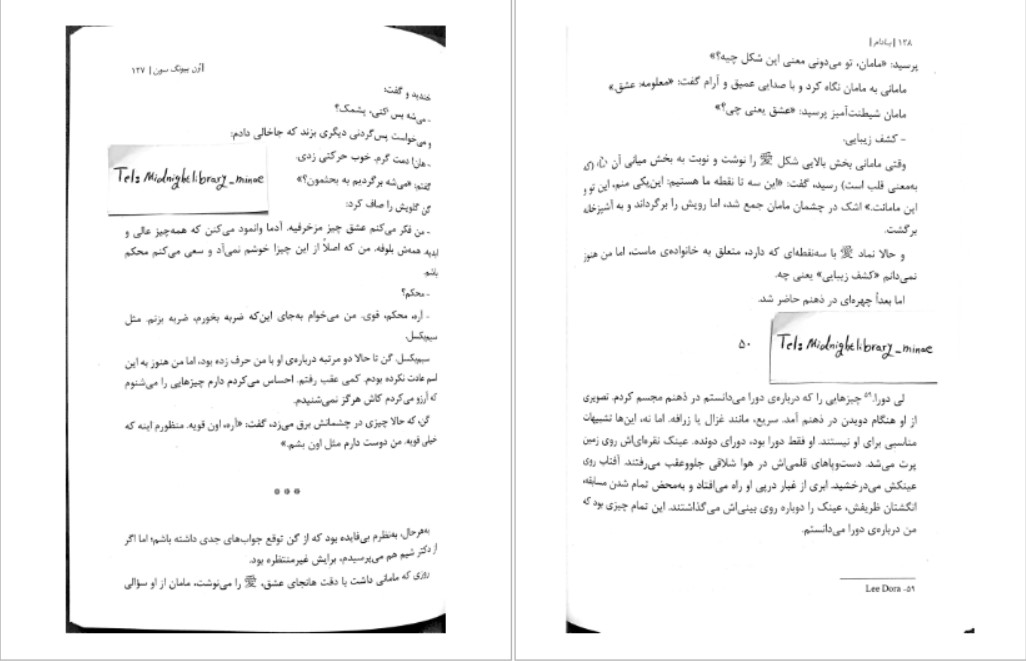 آژن پیونگ سون | ۱۲۷
خندید و گفت:
- می‌شه پس کنی، پشمک؟
و می‌خواست پس‌گردنی دیگری بزند که جاخالی دادم:
- هان! دمت گرم. خوب حرکتی زدی.
گفتم: «می‌شه برگردیم به بحثمون؟»
گن گلویش را صاف کرد:
Tel: Midnightlibrary_minoe
- من فکر می‌کنم عشق چیز مزخرفیه. آدما وانمود می‌کنن که همه‌چیز عالی و
ابدیه. همه‌ش بلوفه. من که اصلاً از این چیزا خوشم نمی‌آد و سعی می‌کنم محکم
باشم.
- محکم؟
- آره، محکم، قوی. من می‌خوام به‌جای این‌که ضربه بخورم، ضربه بزنم. مثل
سیم‌بکسل.
سیم‌بکسل. گن تا حالا دو مرتبه درباره‌ی او با من حرف زده بود، اما من هنوز به این
اسم عادت نکرده بودم. کمی عقب رفتم. احساس می‌کردم دارم چیزهایی را می‌شنوم
که آرزو می‌کردم کاش هرگز نمی‌شنیدم.
گن، که حالا چیزی در چشمانش برق می‌زد، گفت: «آره، اون قویه. منظورم اینه که
خیلی قویه. من دوست دارم مثل اون بشم.»
به‌هرحال، به‌نظرم بی‌فایده بود که از گن توقع جواب‌های جدی داشته باشم؛ اما اگر
از دکتر شیم هم می‌پرسیدم، برایش غیرمنتظره بود.
روزی که مامانی داشت با دقت هانجای عشق، 愛 را می‌نوشت، مامان از او سؤالی
۱۲۸ | بادام |
پرسید: «مامان، تو می‌دونی معنی این شکل چیه؟»
مامانی به مامان نگاه کرد و با صدایی عمیق و آرام گفت: «معلومه: عشق.»
مامان شیطنت‌آمیز پرسید: «عشق یعنی چی؟»
- کشف زیبایی.
وقتی مامانی بخش بالایی شکل 愛 را نوشت و نوبت به بخش میانی آن 心 (که
به‌معنی قلب است) رسید، گفت: «این سه تا نقطه ما هستیم: این‌یکی منم، این تو و
این مامانت.» اشک در چشمان مامان جمع شد، اما رویش را برگرداند و به آشپزخانه
برگشت.
و حالا نماد 愛 با سه‌نقطه‌ای که دارد، متعلق به خانواده‌ی ماست، اما من هنوز
نمی‌دانم «کشف زیبایی» یعنی چه.
اما بعداً چهره‌ای در ذهنم حاضر شد.
۵۰
Tel: Midnightlibrary_minoe
لی دورا.⁵⁹ چیزهایی را که درباره‌ی دورا می‌دانستم در ذهنم مجسم کردم. تصویری
از او هنگام دویدن در ذهنم آمد. سریع، مانند غزال یا زرافه. اما نه، این‌ها تشبیهات
مناسبی برای او نیستند. او فقط دورا بود، دورای دونده. عینک نقره‌ای‌اش روی زمین
پرت می‌شد. دست‌وپاهای قلمی‌اش در هوا شلاقی جلووعقب می‌رفتند. آفتاب روی
عینکش می‌درخشید. ابری از غبار درپی او راه می‌افتاد و به‌محض تمام شدن مسابقه،
انگشتان ظریفش، عینک را دوباره روی بینی‌اش می‌گذاشتند. این تمام چیزی بود که
من درباره‌ی دورا می‌دانستم.
۵۹- Lee Dora